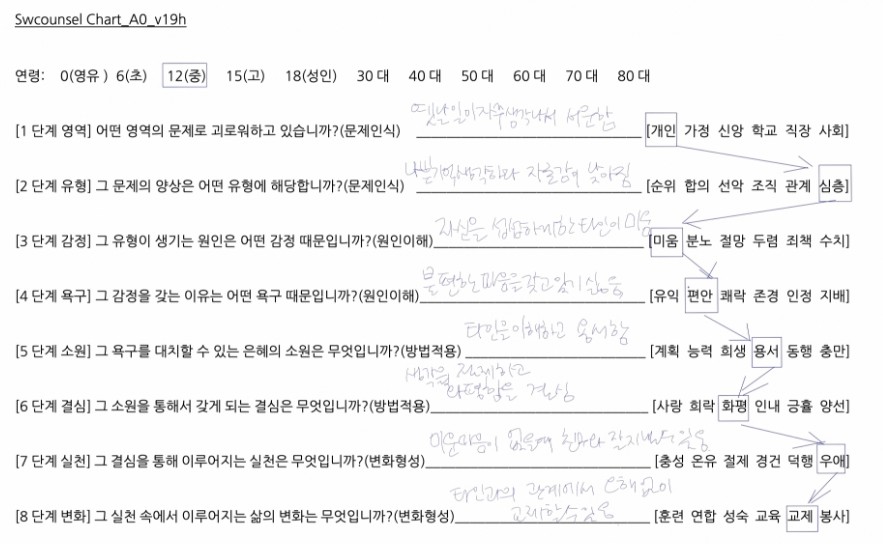 Swcounsel Chart_A0_v19h
연령: 0(영유 ) 6(초) 12(중) 15(고) 18(성인) 30 대 40 대 50 대 60 대 70 대 80 대
옛날일이 자주 생각나서 서운함
[1 단계 영역] 어떤 영역의 문제로 괴로워하고 있습니까?(문제인식) [개인 가정 신앙 학교 직장 사회]
나쁜기억생각하다 자존감이 낮아짐
[2 단계 유형] 그 문제의 양상은 어떤 유형에 해당합니까?(문제인식) [순위 합의 선악 조직 관계 심층]
자신을 섭섭하게한 타인이 미움
[3 단계 감정] 그 유형이 생기는 원인은 어떤 감정 때문입니까?(원인이해) [미움 분노 절망 두렴 죄책 수치]
불편한 마음을 갖고있기 싫음
[4 단계 욕구] 그 감정을 갖는 이유는 어떤 욕구 때문입니까?(원인이해) [유익 편안 쾌락 존경 인정 지배]
타인을 이해하고 용서함
[5 단계 소원] 그 욕구를 대치할 수 있는 은혜의 소원은 무엇입니까?(방법적용) [계획 능력 희생 용서 동행 충만]
생각을 절제하고
화평함을 결심
[6 단계 결심] 그 소원을 통해서 갖게 되는 결심은 무엇입니까?(방법적용) [사랑 희락 화평 인내 긍휼 양선]
미운마음이 없을때 친구와 잘지낼수 있음
[7 단계 실천] 그 결심을 통해 이루어지는 실천은 무엇입니까?(변화형성) [충성 온유 절제 경건 덕행 우애]
타인과의 관계에서 오해없이
교제할수있음
[8 단계 변화] 그 실천 속에서 이루어지는 삶의 변화는 무엇입니까?(변화형성) [훈련 연합 성숙 교육 교제 봉사]